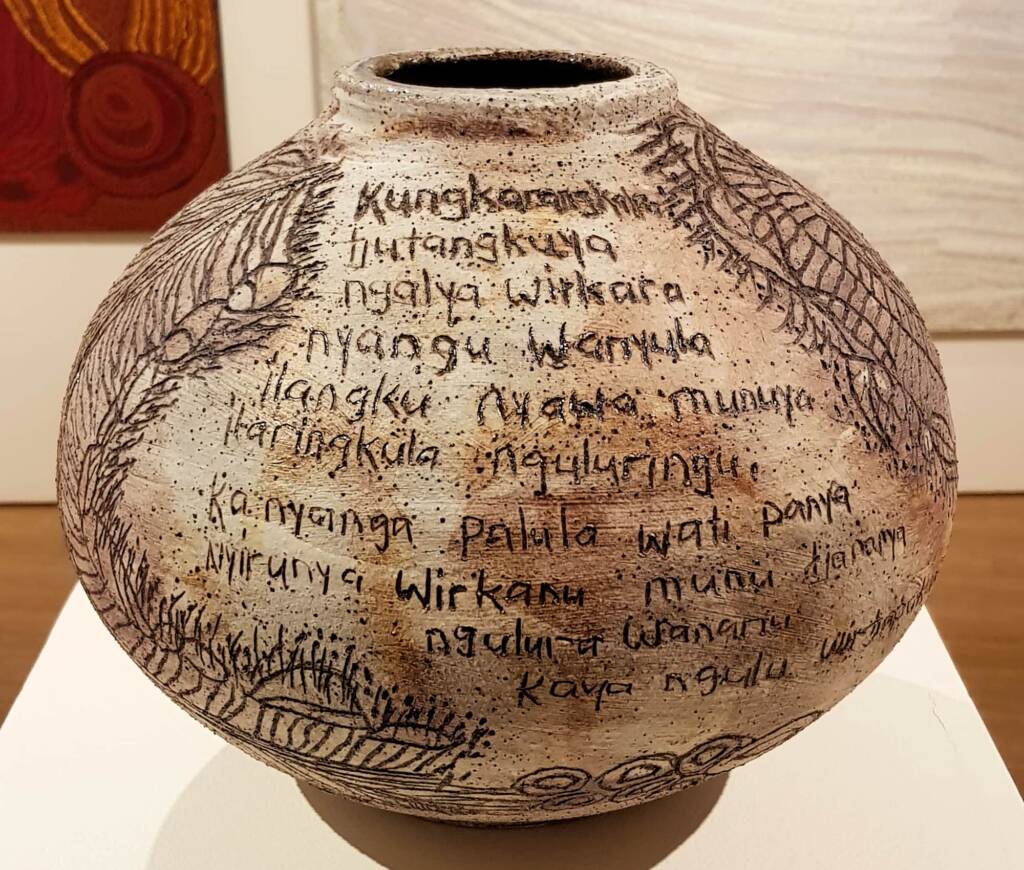 Kungkarangkalpa
tjutangkuya
ngalya wirkara
nyangu Wanyula
ilangku nyawa munuya
itaringkula nguluringu.
Ka nyanga palula wati panya
Nyirunya Wirkanu munu tjananya
ngulura Wananu
Kaya ngulu